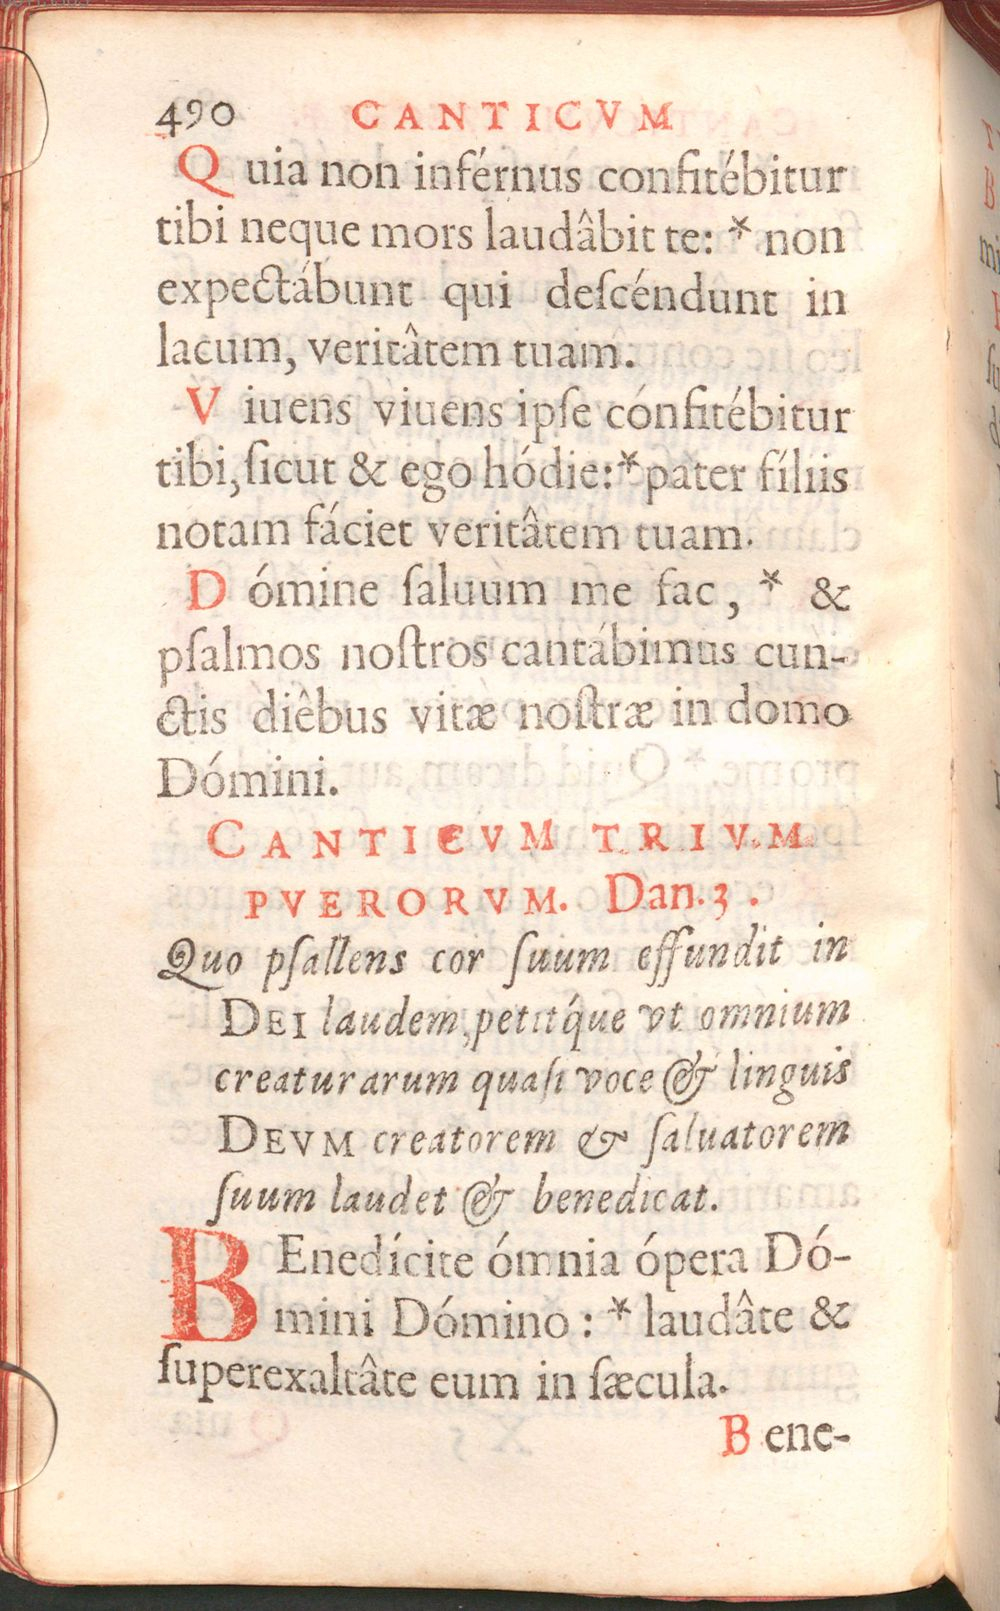 490 CANTICVM
Quia non inférnus confitébitur
tibi neque mors laudâbit te: * non
expectábunt qui deſcéndunt in
lacum, veritâtem tuam.
Viuens viuens ipſe cónfitébitur
tibi, ſicut & ego hódie: * pater fíliis
notam fáciet veritâtem tuam.
Dómine ſaluum me fac, * &
pſalmos noſtros cantábimus cun-
ctis diêbus vitæ noſtræ in domo
Dómini.
CANTICVM TRIVM
PVERORVM. Dan. 3.
Quo pſallens cor ſuum effundit in
DEI laudem, petitq́ue vt omnium
creaturarum quaſi voce & linguis
DEVM creatorem & ſaluatorem
ſuum laudet & benedicat.
BEnedícite ómnia ópera Dó-
mini Dómino : * laudâte &
ſuperexaltâte eum in ſæcula.
Bene-